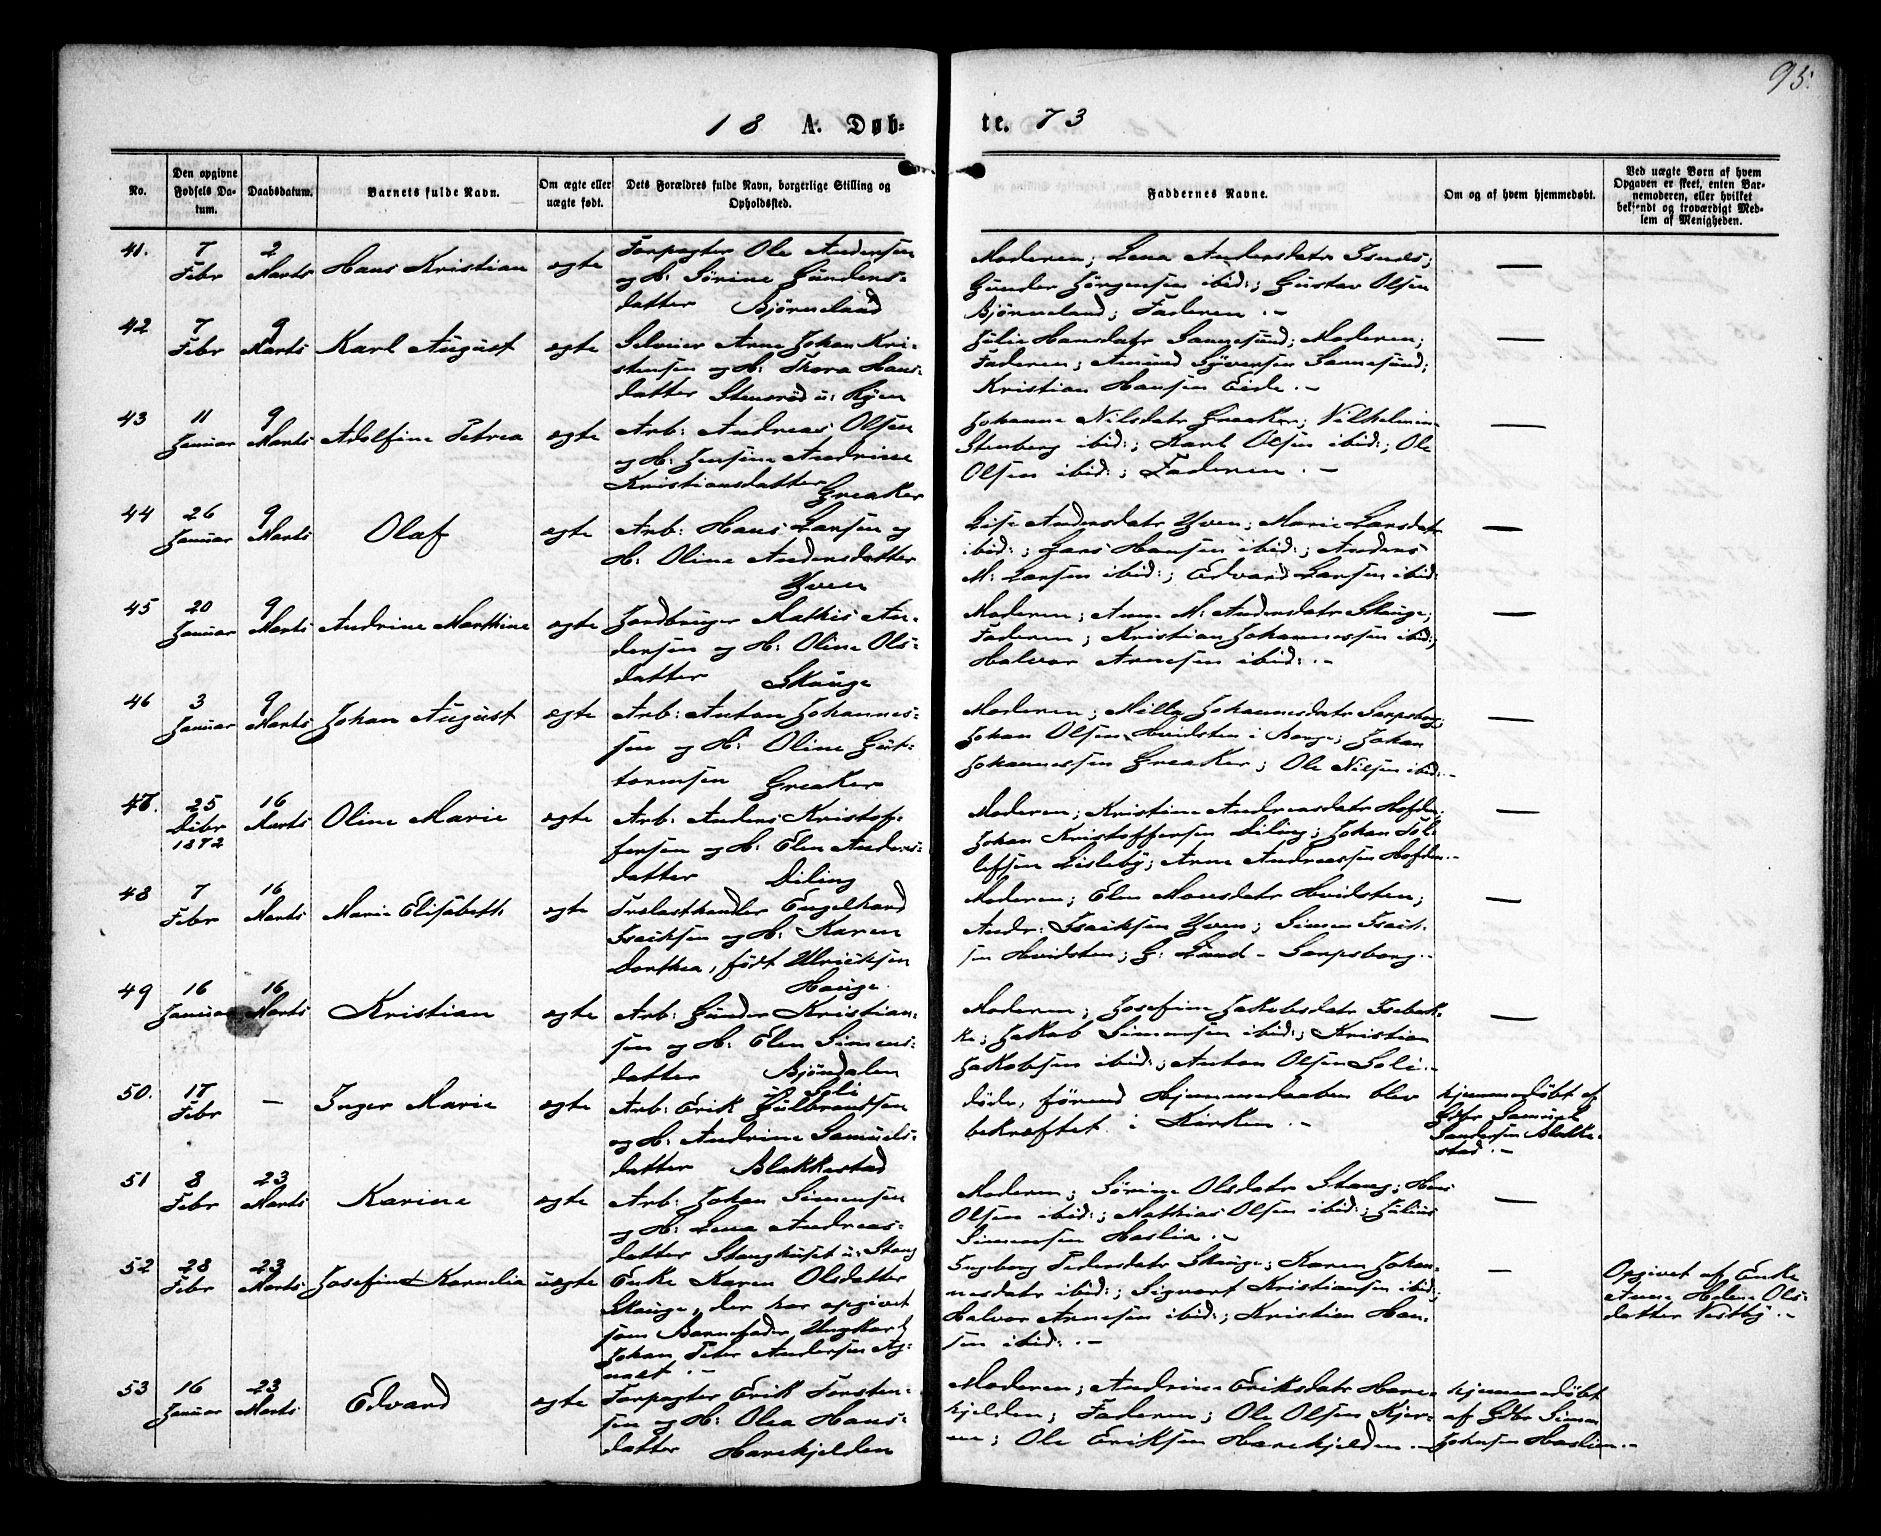 95.
18 A. Døb-
te. 73
No.
Den opgivne Fødsels Da-tum.
Daabsdatum.
Barnets fulde Navn.
Om ægte eller uægte født.
Dets Forældres fulde Navn, borgerlige Stilling og Opholdssted.
Faddernes Navne.
Om og af hvem hjemmedøbt.
Ved uægte Børn af hvem Opgaven er skeet, enten Bar-nemoderen, eller hvilket bekjendt og troværdigt Med-lem af Menigheden.
41.
7 Febr
2 Marts
Hans Kristian
ægte
Forpagter Ole Andersen
og H: Sørine Gunders-
datter Bjørneland
Moderen; Lena Andersdatr
Gunder Jørgensen ibid:; Gustav Olsen
Bjørneland; Faderen.-
—
42
7 Febr
9 Marts
Karl August
ægte
Selveier Arne Johan Kri-
stensen og H: Thora Hans-
datter Stensrød u: Kjøen
Julie Hansdatr Sannesund; Moderen;
Faderen; Amund Syversen Sannesund;
Kristian Hansen Eide.-
—
43
11 Januar
9 Marts
Adolfine Petrea
ægte
Arb: Andreas Olsen
og H: Jensine Andrine
Kristiansdatter Greaker
Johanne Nilsdatr Greaker; Vilhelmine
Stenberg ibid:; Karl Olsen ibid:; Ole
Olsen ibid:; Faderen.-
—
44
26 Januar
9 Marts
Olaf
ægte
Arb: Hans Larsen og
H: Oline Andersdatter
Yven
Lise Andersdatr Yven; Marie Larsdatr
ibid:; Lars Hansen ibid:; Anders
M: Larsen ibid:; Edvard Larsen ibid:
—
45
20 Januar
9 Marts
Andrine Marthine
ægte
Jordbruger Mathis An-
dersen og H: Oline Ols-
datter Skauge
Moderen; Anne M: Andersdatr Skauge;
Faderen; Kristian Johannessen ibid:;
Halvor Arnesen ibid:.-
—
46
3 Januar
9 Marts
Johan August
ægte
Arb: Anton Johannes-
sen og H: Oline Gut-
tormsen Greaker
Moderen; Milla Johannesdatr Sarpsborg;
Johan Olsen Hvidsten i Borge; Johan
Johannessen Greaker; Ole Nilsen ibid:.-
—
47.
25 Debr 1872
16 Marts
Oline Marie
ægte
Arb: Anders Kristof-
fersen og H: Elen Anders-
datter Diling
Moderen; Kristine Andreasdatr Hofden;
Johan Kristoffersen Diling; Johan Tol-
lefsen Lisleby; Arne Andreassen Hofden.-
—
48
7 Febr
16 Marts
Marie Elisabeth
ægte
Trælasthandler Engelhard
Isaiksen og H: Karen
Dorthea, født Ulriksen
Hauge.
Moderen; Elen Monsdatr Hvidsten;
Andr: Isaiksen Yven; Simen Isaik-
sen Hvidsten; G: Lund - Sarpsborg.-
—
49
16 Januar
16 Marts
Kristian
ægte
Arb: Gunder Kristian-
sen og H: Elen Simens-
datter Bjørndalen
u: Soli
Moderen; Josefine Jakobsdatr Isebak-
ke; Jakob Simensen ibid:; Kristian
Jakobsen ibid:; Anton Olsen Soli.-
—
50.
17 Febr
—
Inger Marie
ægte
Arb: Erik Gulbrandsen
og H: Andrine Samuels-
datter Blakkestad
døde, førend Hjemmedaaben blev
bekræftet i Kirken.-
hjemmedøbt af
Gdbr Samuel
Sandersen Blakke-
stad.-
51
8 Febr
23 Marts
Karine
ægte
Arb: Johan Simensen
og H: Lena Andreas-
datter Stanghuset u: Stang
Moderen; Sørine Olsdatr Stang; Hans
Olsen ibid:; Mathias Olsen ibid:; Julius
Simensen Haslia.-
—
52
28 Febr
23 Marts
Josefine Kornelia
uægte
Enke Karen Olsdatter
Skauge, der har opgivet
som Barnefader, Ungkarl
Johan Peter Andersen Ag-
nalt.-
Ingeborg Pedersdatr Skauge; Karen Johan-
nesdatr ibid:; Signart Kristiansen ibid:;
Halvor Arnesen ibid:; Kristian Han-
sen ibid:.-
—
Opgivet af Enke
Anne Helene Ols-
datter Vestby.-
53
16 Januar
23 Marts
Edvard
ægte
Forpagter Erik Torsten-
sen og H: Olea Hans-
datter Harekjelden
Moderen; Andrine Eriksdatr Hare-
kjelden; Faderen; Ole Olsen Kjer-
; Ole Eriksen Harekjelden.-
hjemmedøbt
af Gdbr Simen
Johnsen Haslien.-